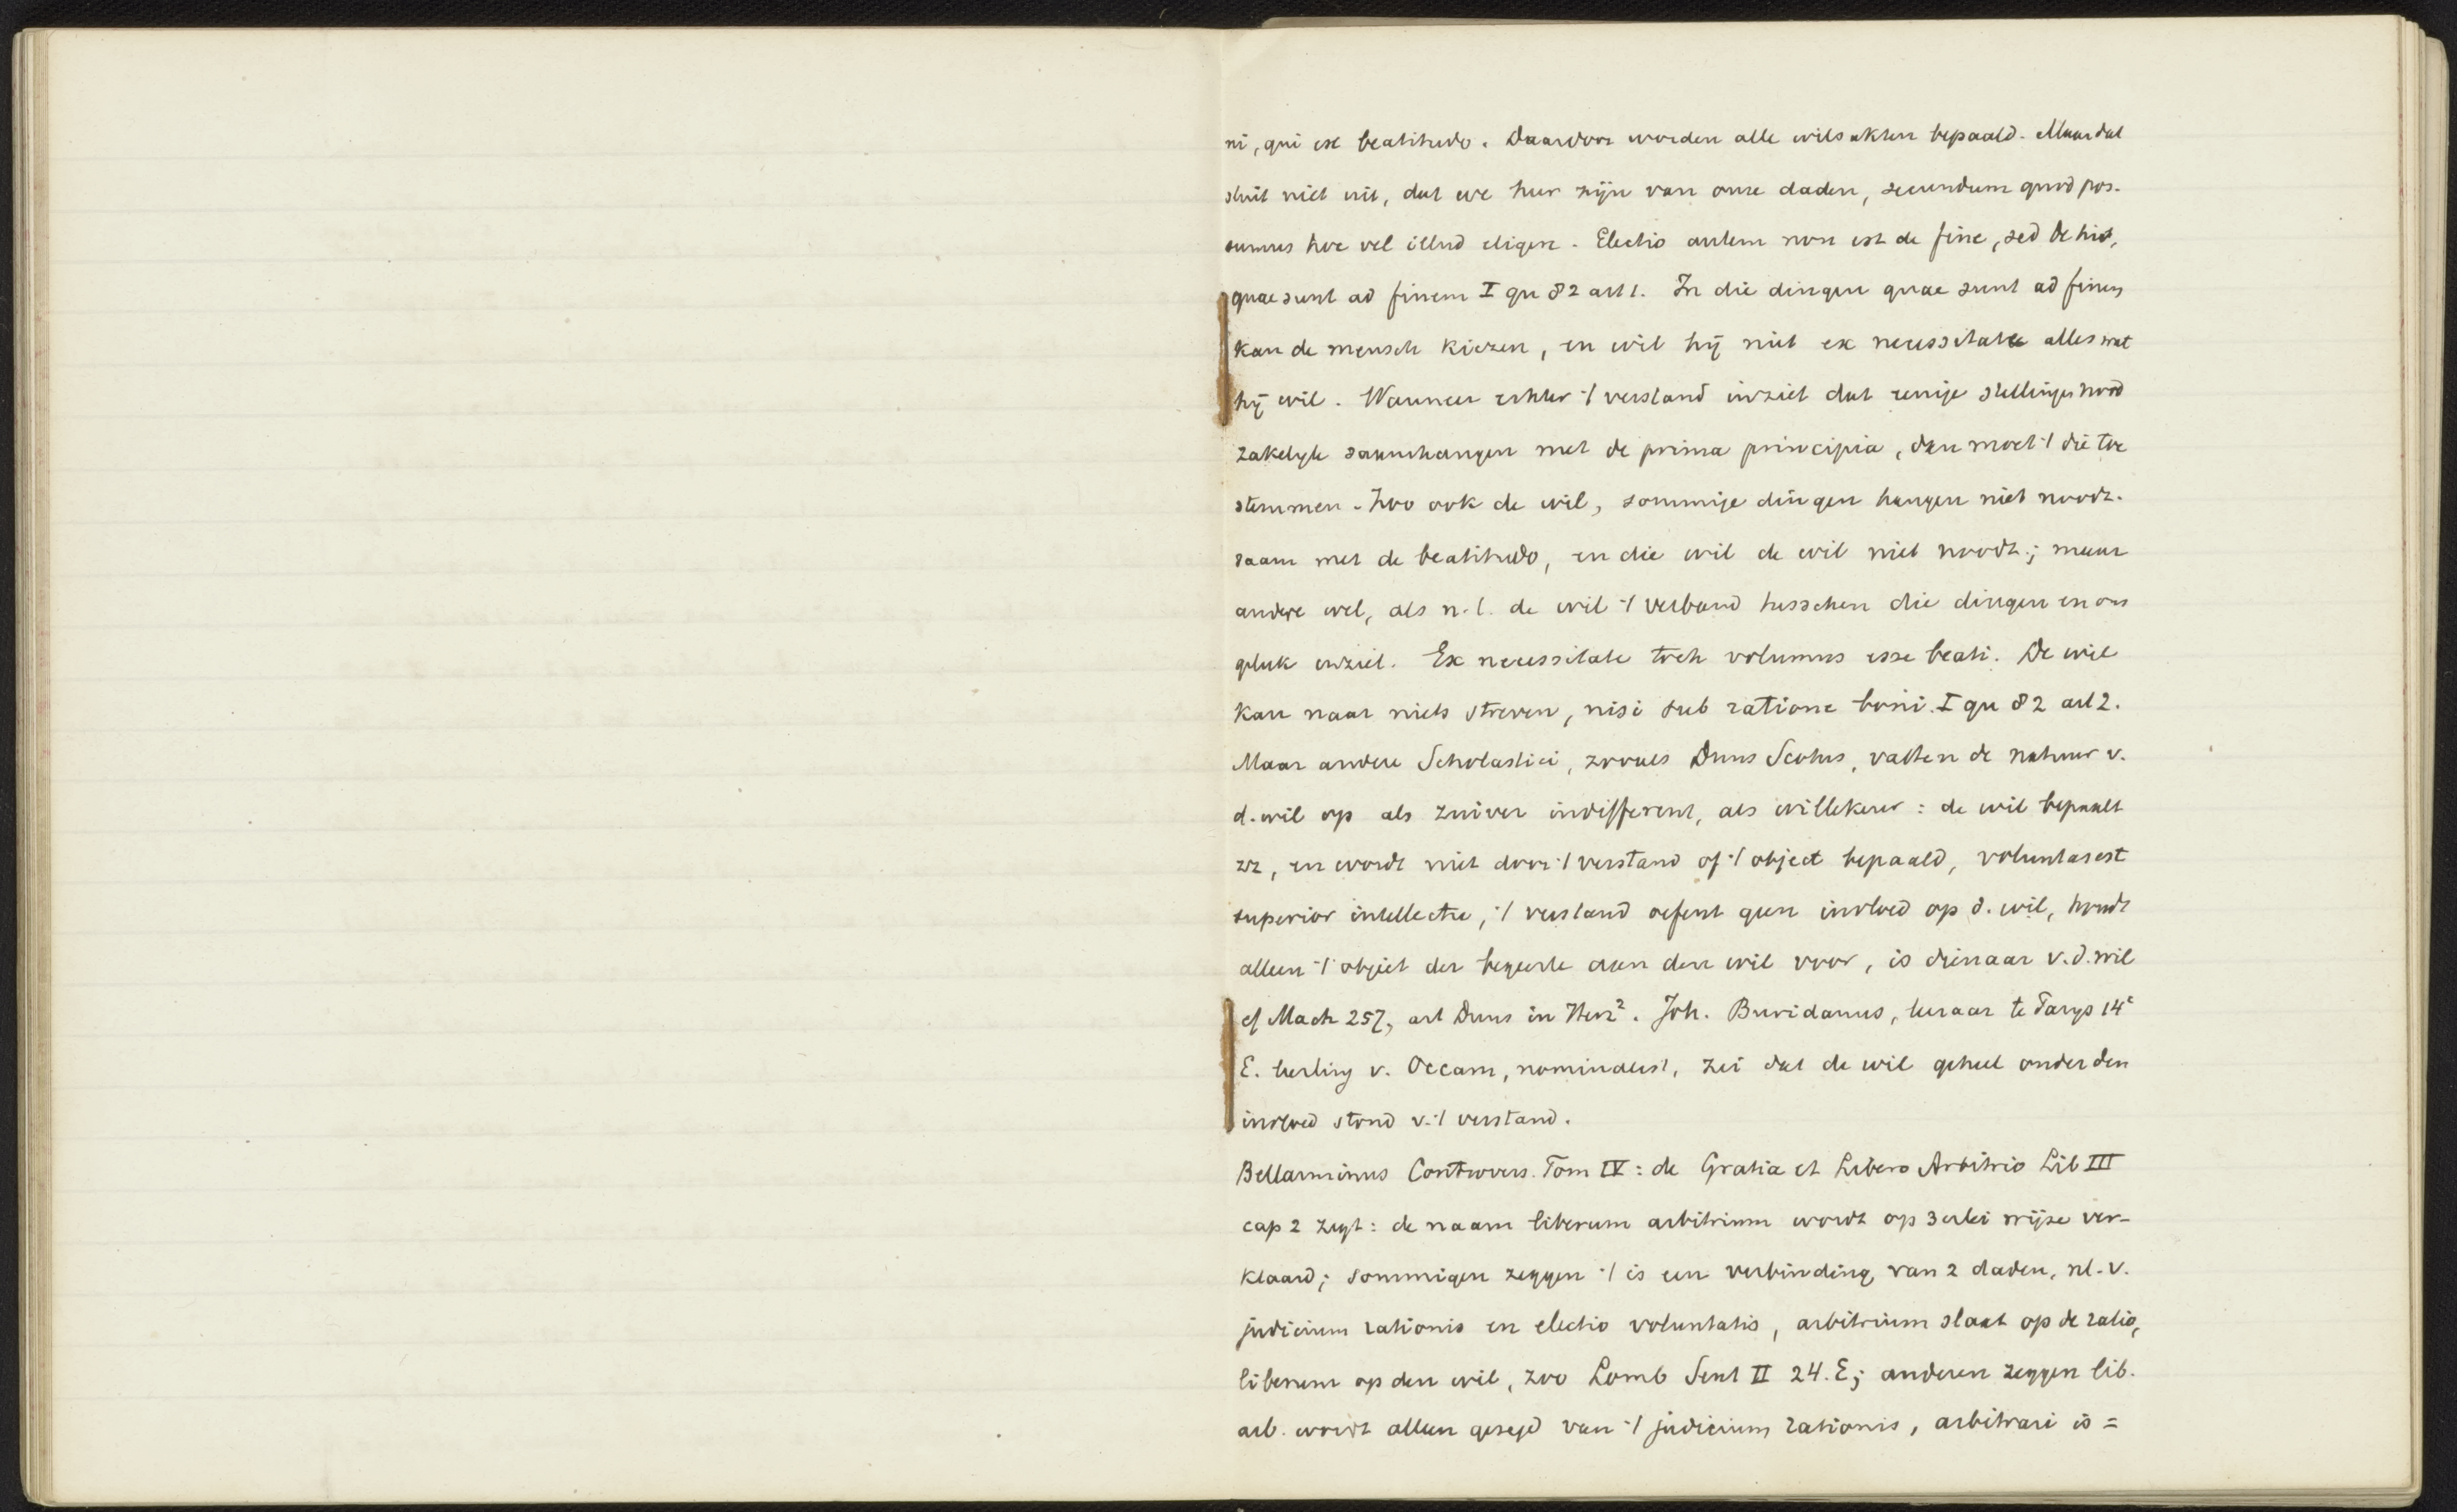 ni, qui est beatitudo. Daardoor worden alle wilsakten bepaald. Maar dat
sluit niet uit, dat we heer zijn van onze daden, secundum quod pos-
sumus hoc vel illud eligere. Electio autem non est de fine, sed de his,
quae sunt ad finem I qu 82 art 1. In die dingen quae sunt ad finem
kan de mensch kiezen, en wil hij niet ex necessitate alles wat
hij wil. Wanneer echter 't verstand inziet dat eenige stellingen nood
zakelyk saamhangen met de prima principia, dan moet 't die toe
stemmen. Zoo ook de wil, sommige dingen hangen niet noodz.
saam met de beatitudo, en die wil de wil niet noodz.; maar
andere wel, als n.l. de wil 't verband tusschen die dingen en ons
geluk inziet. Ex necessitate toch volumus esse beati. De wil
kan naar niets streven, nisi sub ratione boni. I qu 82 art 2.
Maar andere Scholastici, zooals Duns Scotus, vatten de natuur v.
d. wil op als zuiver indifferent, als willekeur: de wil bepaalt
zz, en wordt niet door 't verstand of 't object bepaald, voluntas est
superior intellectu, 't verstand oefent geen invloed op d. wil, houdt
alleen 't object der begeerte aan den wil voor, is dienaar v.d. wil
cf Mach 257, art Duns in Herz². Joh. Buridanus, leeraar te Parys 14e
E. leerling v. Occam, nominalist, zei dat de wil geheel onder den
invloed stond v. 't verstand.
Bellarminus Controvers. Tom IV: de Gratia et Libero Arbitrio Lib III
cap 2 zegt: de naam liberum arbitrium wordt op 3erlei wijze ver-
klaard; sommigen zeggen 't is een verbinding van 2 daden, nl. v.
judicium rationis en electio voluntatis, arbitrium slaat op de ratio,
liberum op den wil, zoo Lomb Sent II 24. E; anderen zeggen lib.
arb. wordt alleen gezegd van 't judicium rationis, arbitrari is =